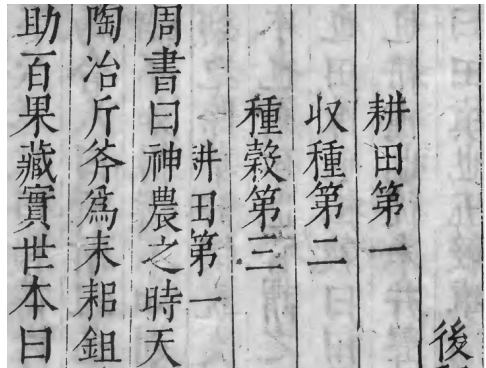 後
耕田第一
収種第二
種穀第三
耕田第一
周書曰神農之時天
陶冶斤斧爲耒耜鉏
助百果藏實世本曰